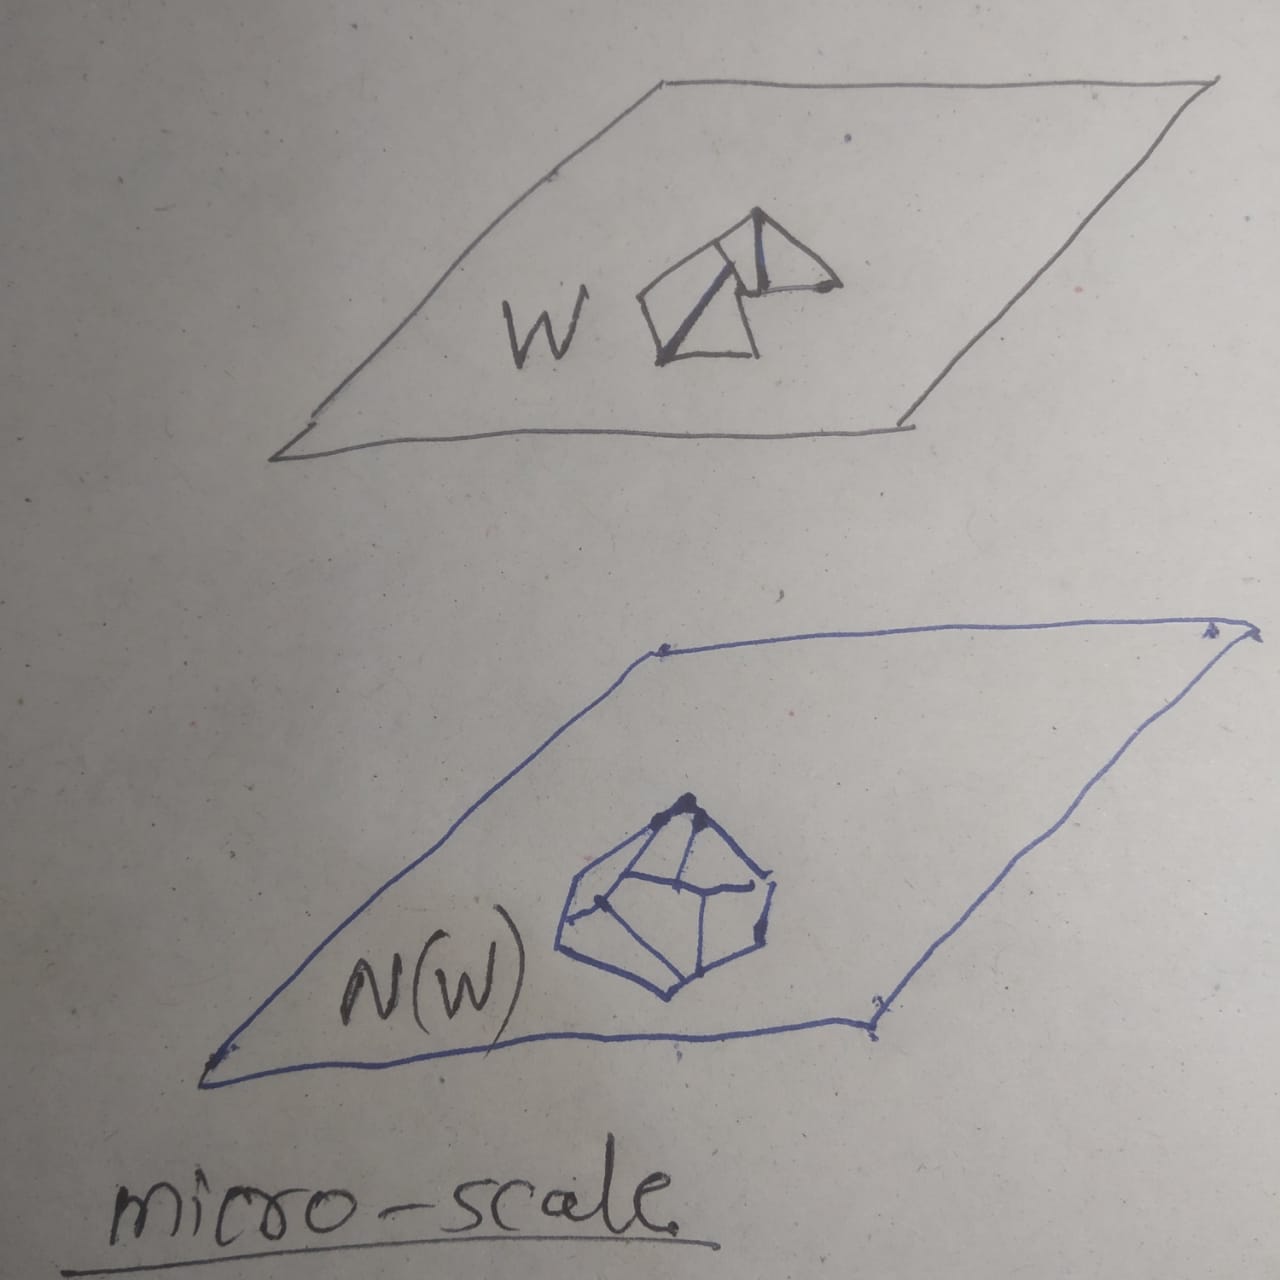 W
N(W)
micro-scale